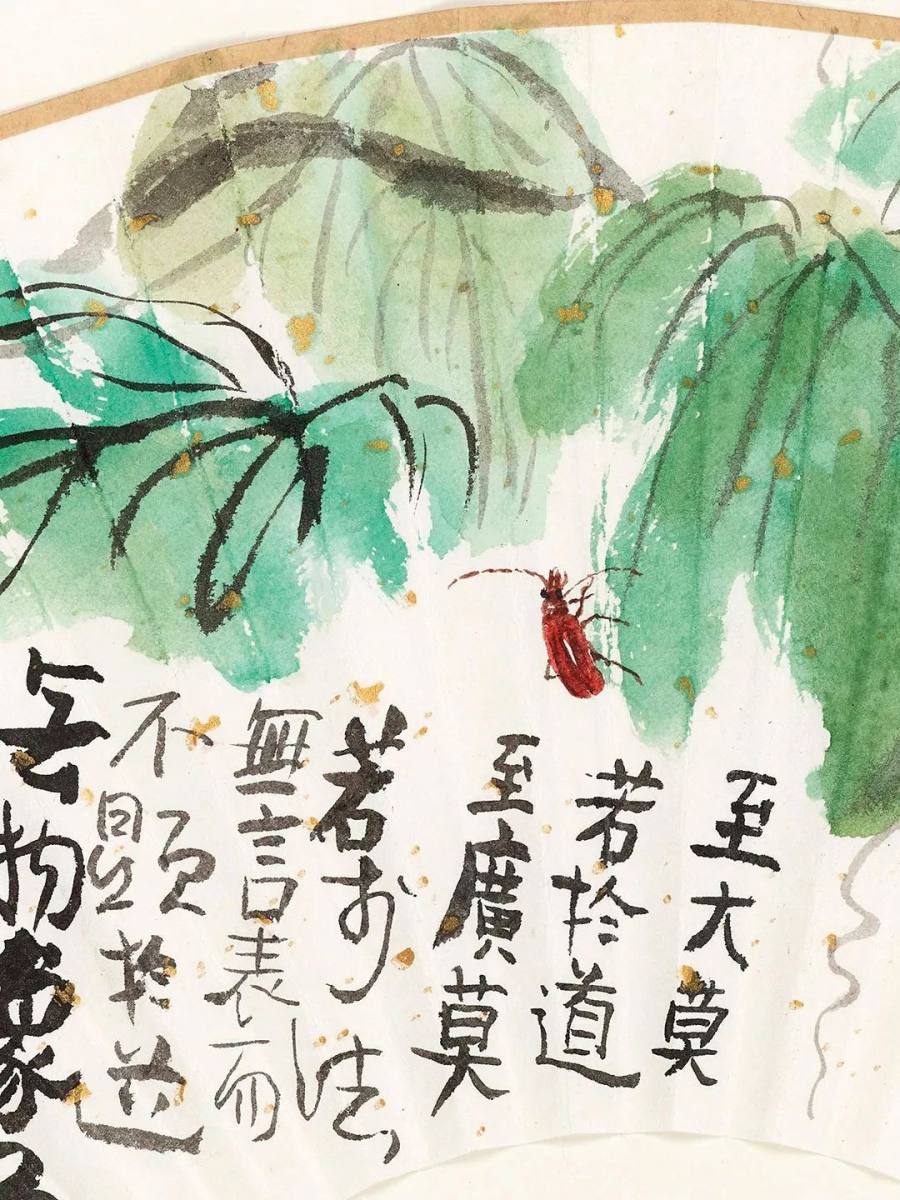 至大莫
若於道
至廣莫
若於法
無言表而
不顯於道
无物象